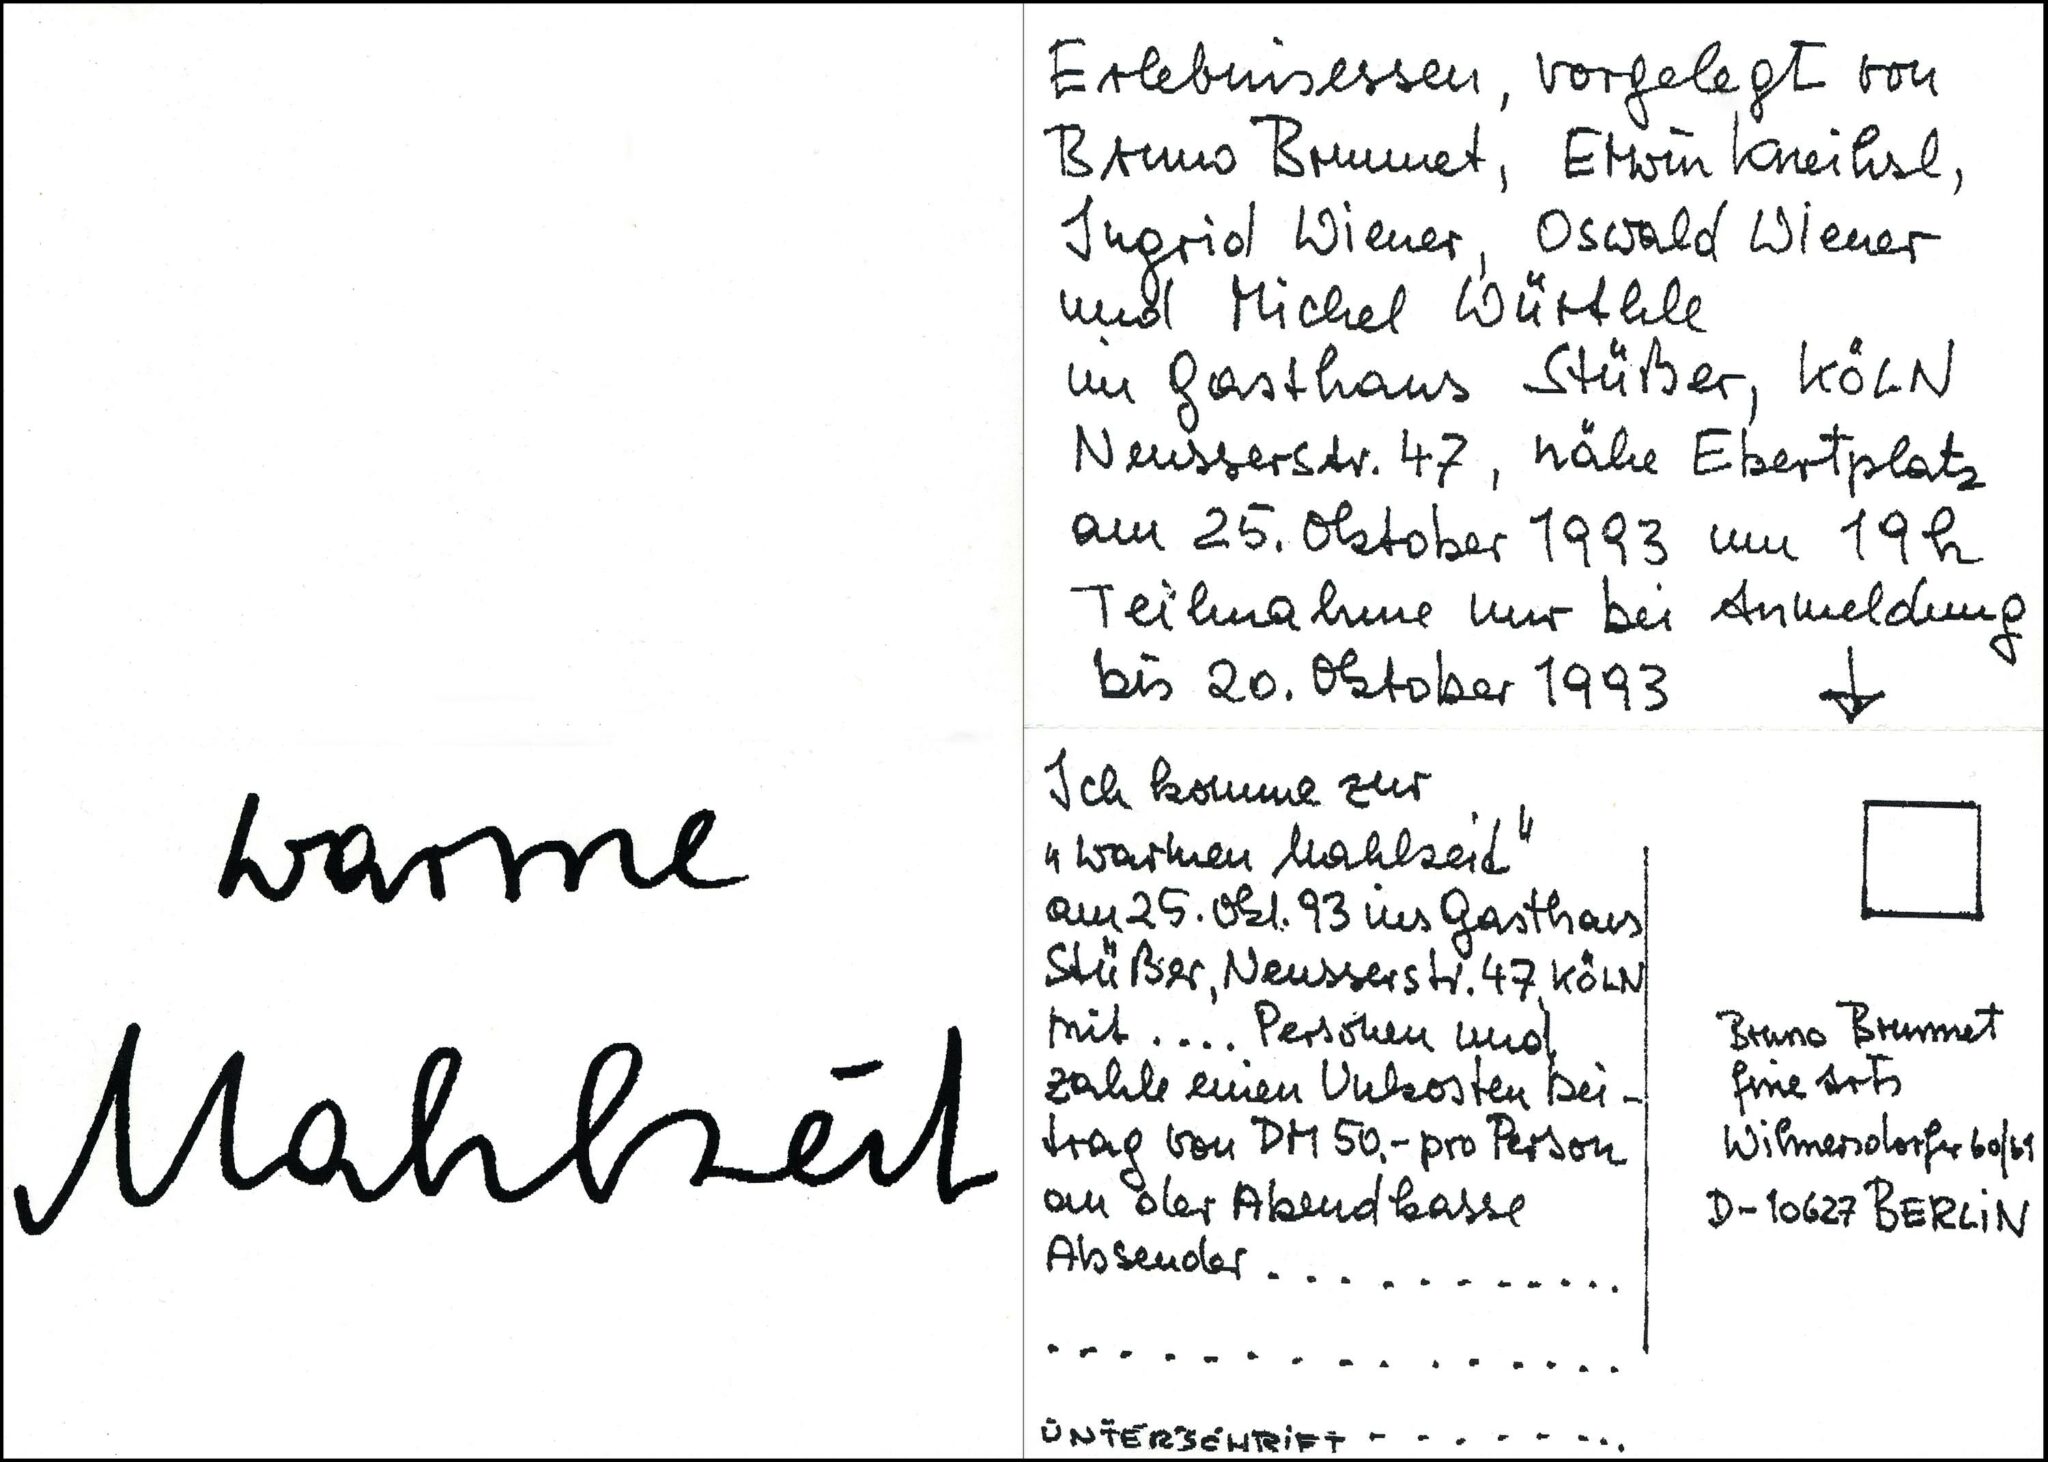 warme
Mahlzeit
Erlebnisessen, vorgelegt von
Bruno Brunnet, Erwin Kneihsl,
Ingrid Wiener, Oswald Wiener
und Michel Würthle
im Gasthaus Stüßer, KÖLN
Neusserstr. 47, nähe Ebertplatz
am 25. Oktober 1993 um 19h
Teilnahme nur bei Anmeldung
bis 20. Oktober 1993 ↓
Ich komme zur
„warmen Mahlzeit"
am 25. Okt. 93 ins Gasthaus
Stüßer, Neusserstr. 47, KÖLN
mit .... Personen und
zahle einen Unkosten bei-
trag von DM 50,- pro Person
an der Abendkasse
Absender ..............
................
UNTERSCHRIFT - - . - . - - ..
Bruno Brunnet
fine Arts
Wilmersdorfer 60/61
D-10627 BERLiN